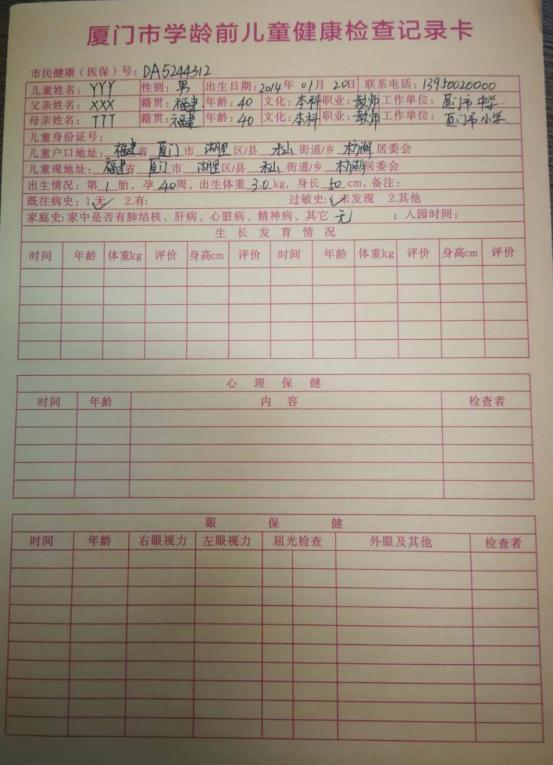 厦门市学龄前儿童健康检查记录卡
市民健康(医保)号:DA5244312
儿童姓名:YYY 性别:男 出生日期:2014年01月20日 联系电话:13950020000
父亲姓名:XXX 籍贯:福建 年龄:40 文化:本科 职业:教师 工作单位:厦门市中学.
母亲姓名:TTT 籍贯:福建 年龄:40 文化:本科 职业:教师 工作单位:厦门市小学
儿童身份证号:
儿童户口地址:福建省 厦门市 湖里区/县 禾山街道/乡 枋湖居委会
儿童现地址:福建省 厦门市 湖里区/县 禾山街道/乡 枋湖居委会
出生情况:第1胎,孕40周,出生体重3.0kg,身长50cm,备注:
既往病史:1.无 2.有: 过敏史:1.未发现 2.其他
家庭史:家中是否有肺结核、肝病、心脏病、精神病、其它 无 ;入园时间:
生长发育情况
时间 年龄 体重kg 评价 身高cm 时间 年龄 体重kg 评价 身高cm 评价
心理保健
时间 年龄 内容 检查者
眼保健
时间 年龄 右眼视力 左眼视力 屈光检查 外眼及其他 检查者